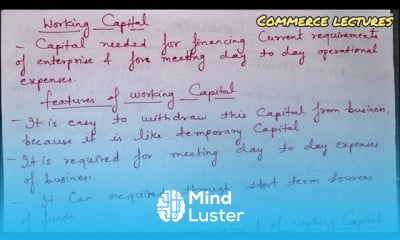 COMMERCE LECTURES
Working Capital
- Capital needed for financing Current requirements
of enterprise & fore meeting day to day operational
expenses.
features of working Capital
- It is easy to withdraw this Capital from business,
because it is like temporary Capital.
- It is required for meeting day to day expenses
of business.
- It Can acquired through short term sources
of funds.
of working Capital
Mind
Luster